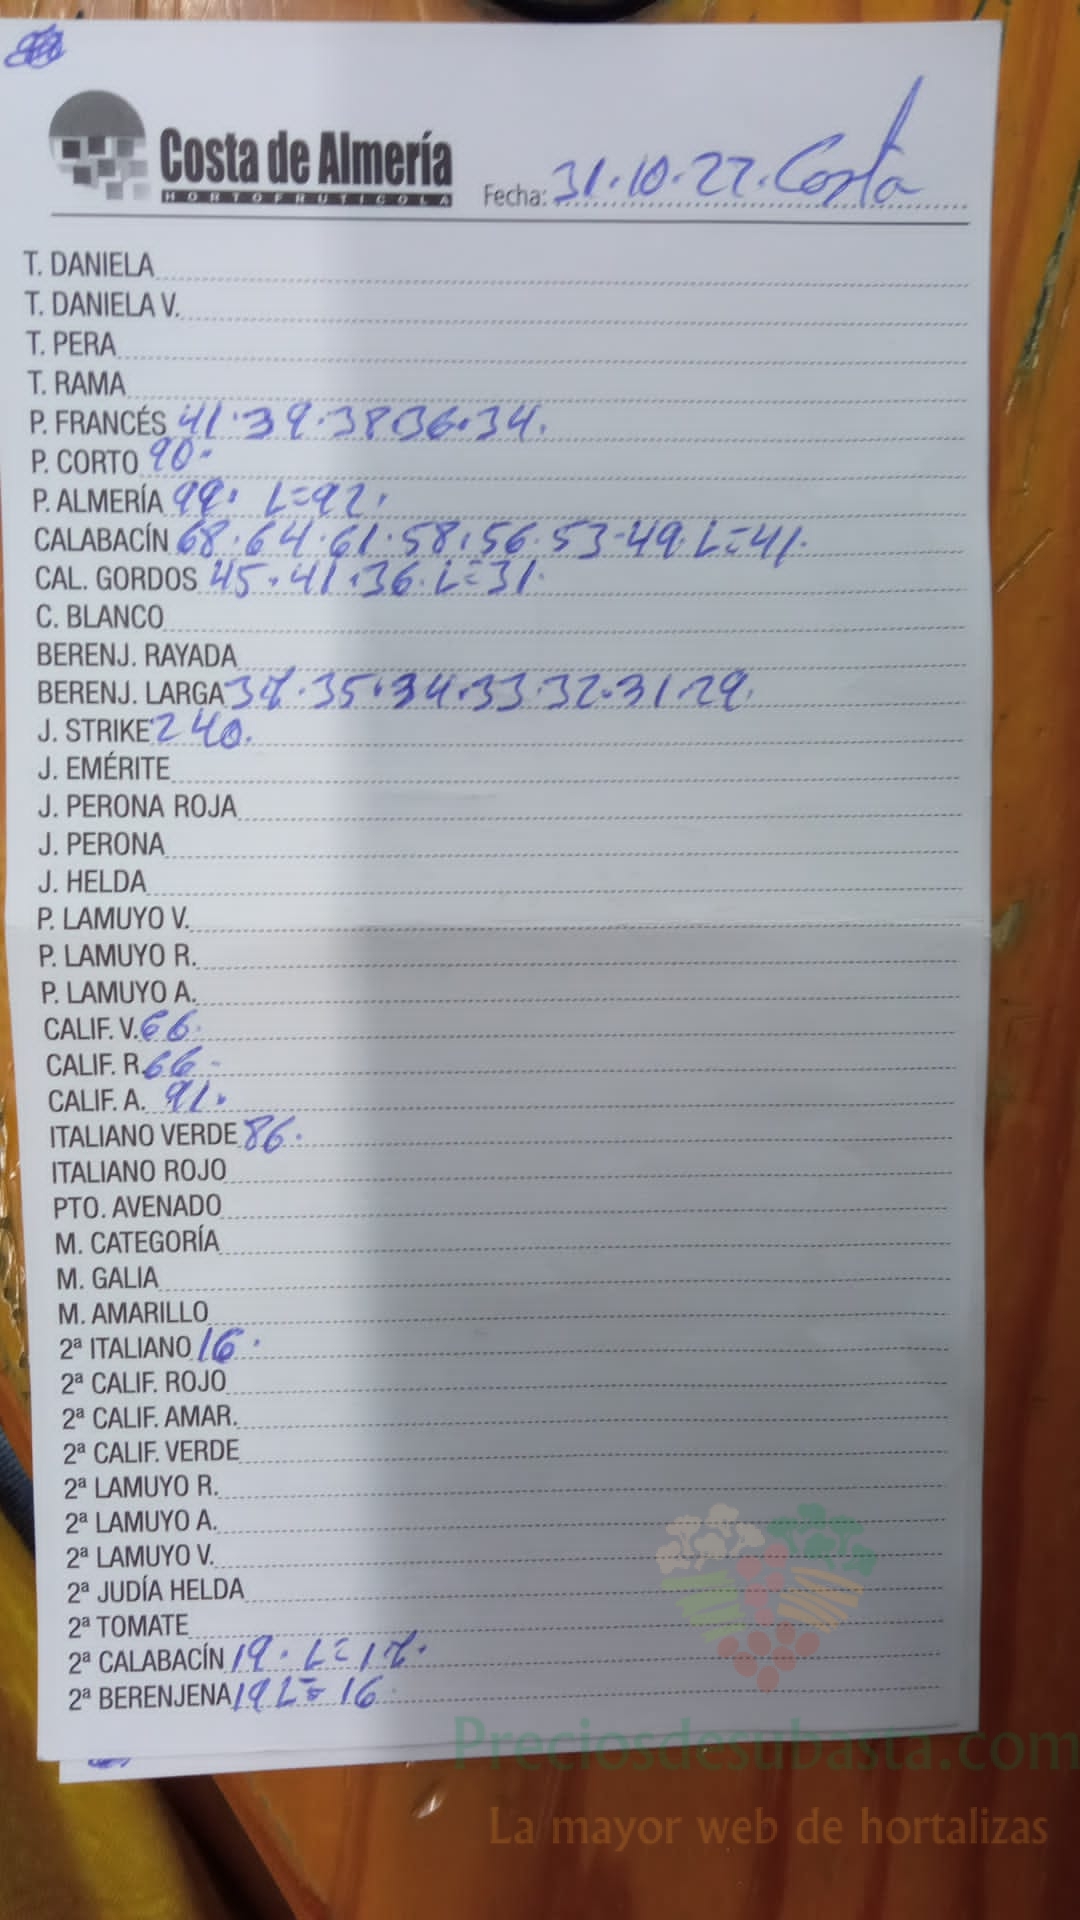 Costa de Almería
HORTOFRUTICOLA
Fecha: 31.10.22. Costa
T. DANIELA
T. DANIELA V.
T. PERA
T. RAMA
P. FRANCÉS 41.39.38 36.34.
P. CORTO 90.
P. ALMERÍA 99. L=92.
CALABACÍN 68.64.61.58.56.53-49.L=41.
CAL. GORDOS 45.41.36.L=31.
C. BLANCO
BERENJ. RAYADA
BERENJ. LARGA 37.35.34.33.32.31.29.
J. STRIKE 240.
J. EMÉRITE
J. PERONA ROJA
J. PERONA
J. HELDA
P. LAMUYO V.
P. LAMUYO R.
P. LAMUYO A.
CALIF. V. 66.
CALIF. R. 66-
CALIF. A. 91.
ITALIANO VERDE 86.
ITALIANO ROJO
PTO. AVENADO
M. CATEGORÍA
M. GALIA
M. AMARILLO
2ª ITALIANO 16.
2ª CALIF. ROJO
2ª CALIF. AMAR.
2ª CALIF. VERDE
2ª LAMUYO R.
2ª LAMUYO A.
2ª LAMUYO V.
2ª JUDÍA HELDA
2ª TOMATE
2ª CALABACÍN 19. L=17.
2ª BERENJENA 19 L=16
Preciosdesubasta.com
La mayor web de hortalizas